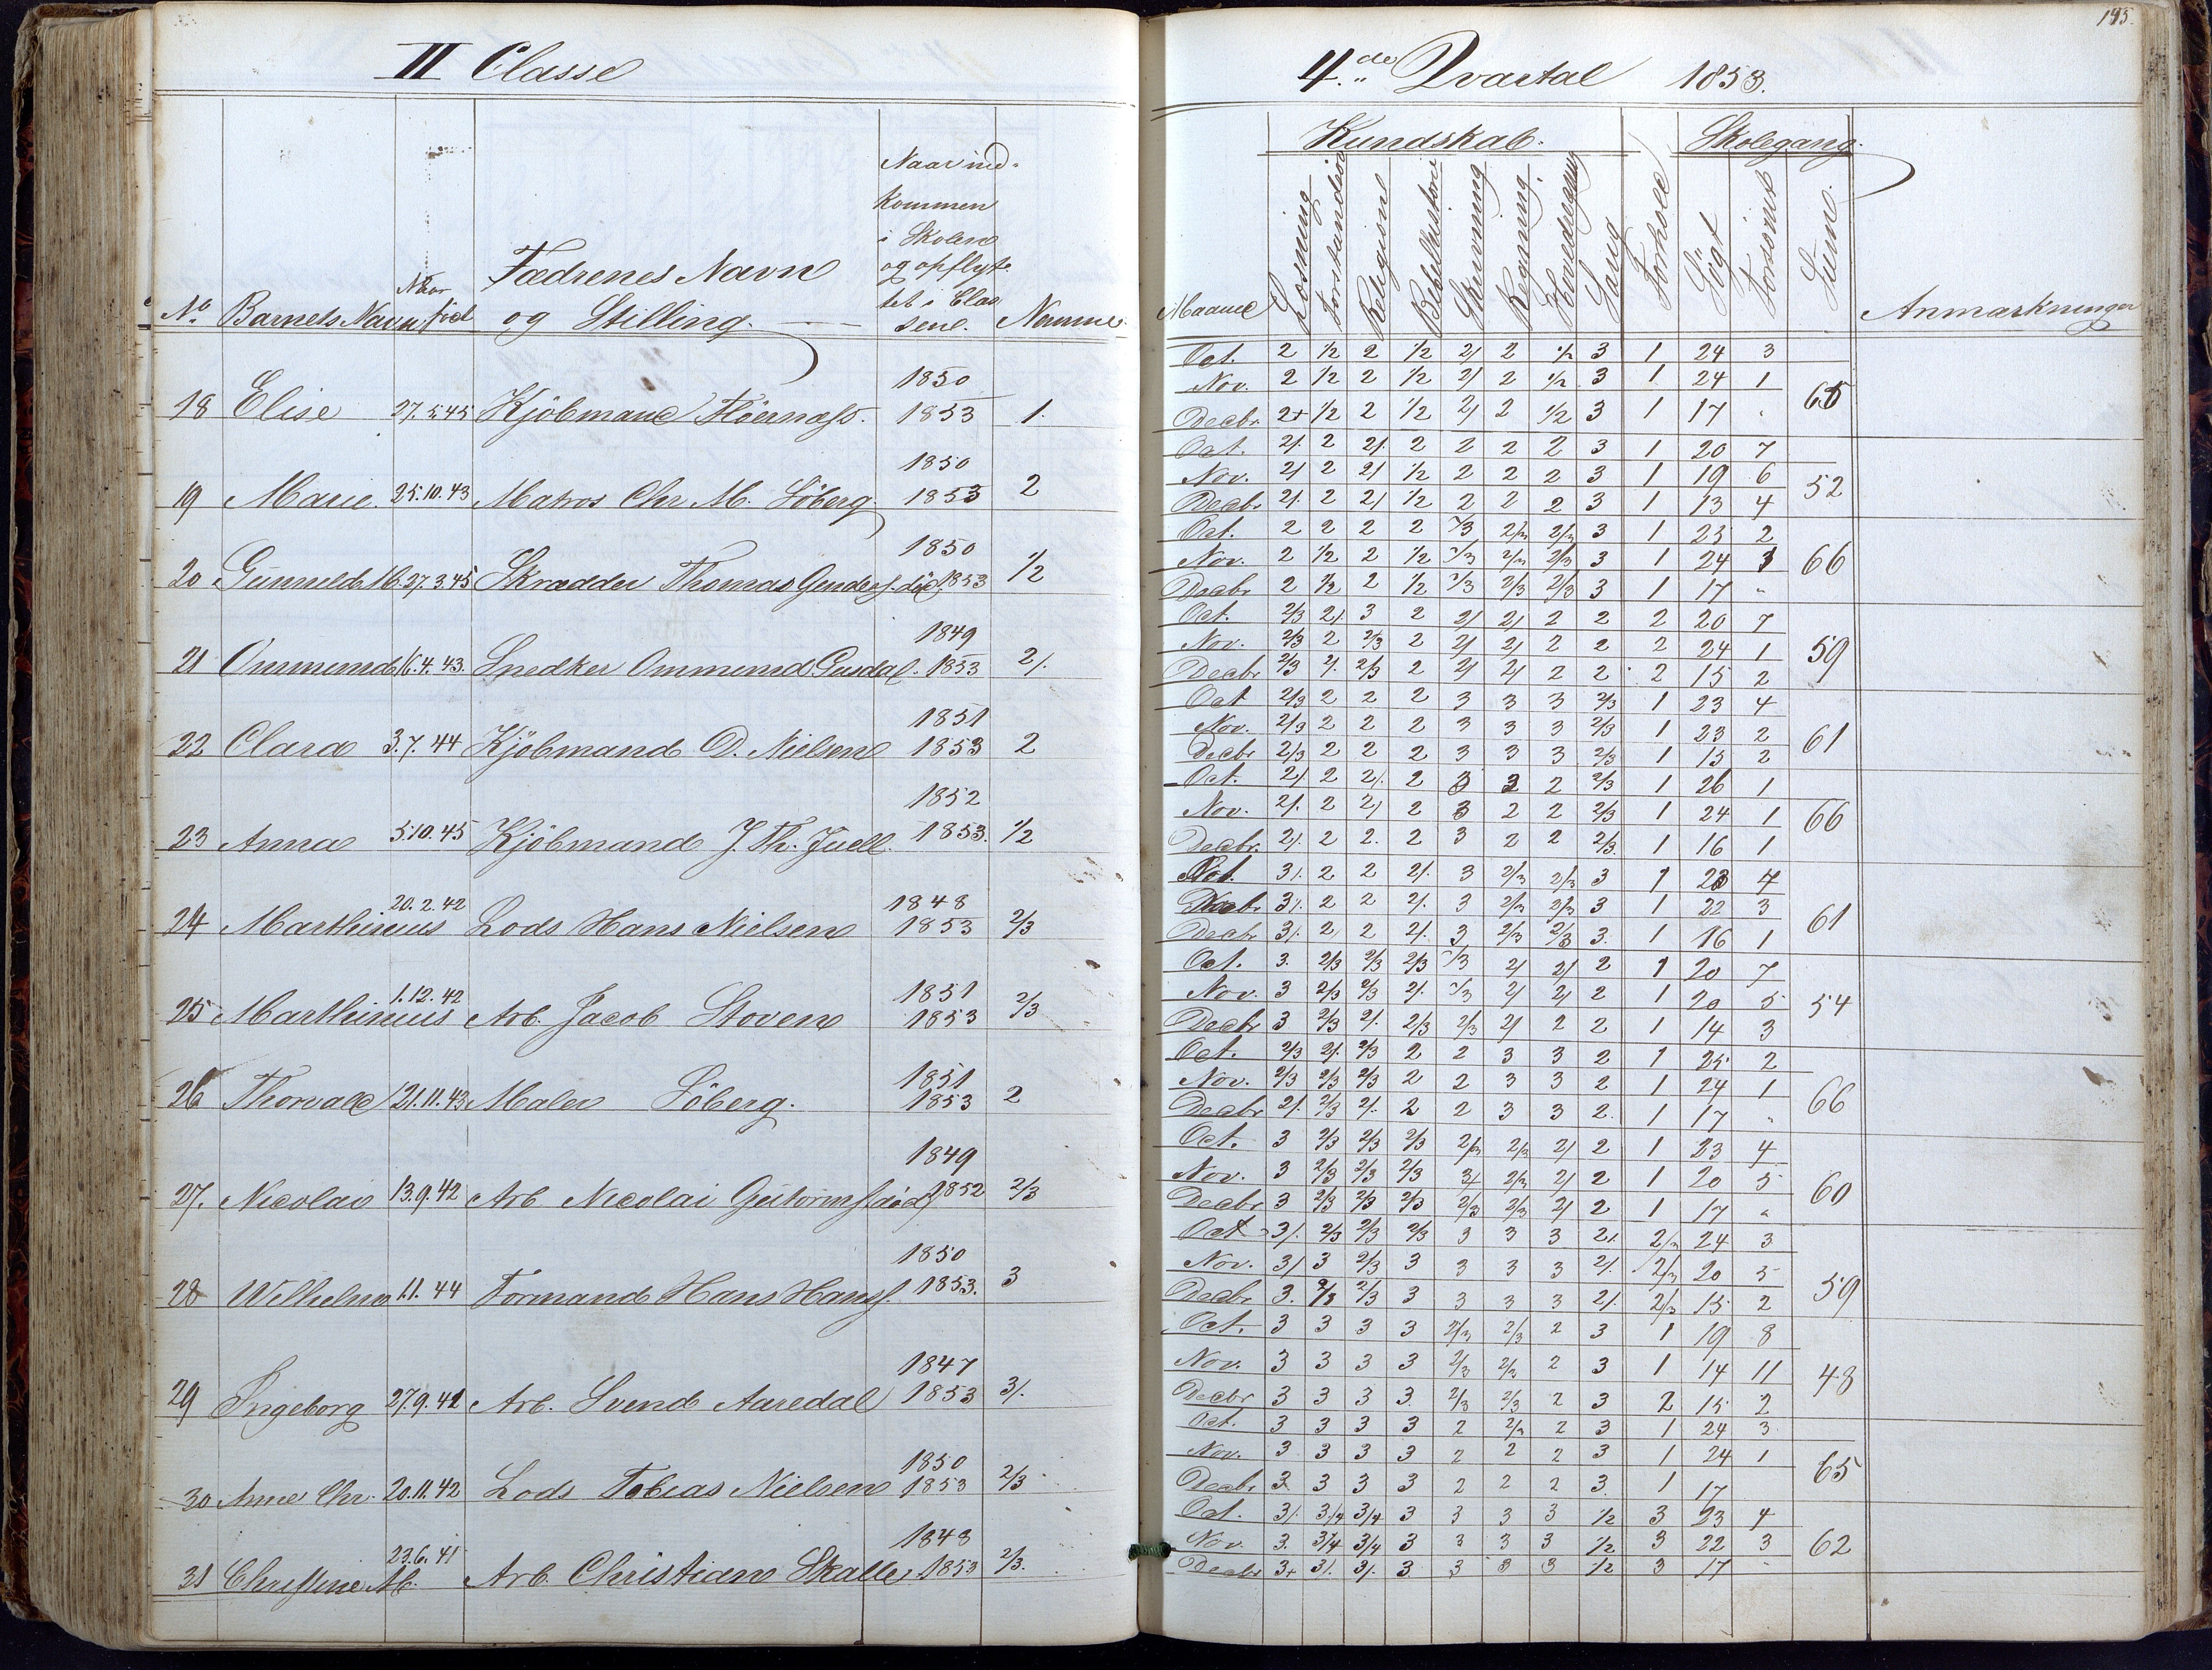 II Classe
No Barnets Navn Naar föd Fædrenes Navn og Stilling. Naar indkommen i Skolen og opflyttet i Classene. Numme
18 Elise 27.5.45 Kjöbmand 1850 1853 1.
19 Marie. 25.10.43 Matros Chr M. Söberg. 1850 1853 2
20 27.3.45 Skrædder Thomas död. 1850 1853 1/2
21 Ommund 16.4.43. Snedker Ommund 1849 1853 2/.
22 Clara 3.7.44 Kjöbmand O. Nielsen 1851 1853 2
23 Anna 5.10.45 Kjöbmand J. Th. Juell. 1852 1853. 1/2
24 Marthinius 20.2.42 Lods Hans Nielsen 1848 1853 2/3
25 Marthinius 1.12.42 Arb. Jacob Stoven 1851 1853 2/3
26 Thorvald 21.11.43 Maler Söberg. 1851 1853 2
27. Nicolai 13.9.42 Arb Nicolai 1849 1852 2/3
28 Wilhelm 1.1.44 Formand Hans Hanss. 1850 1853. 3
29 Ingeborg 27.9.41 Arb. Svend Aaredal 1847 1853 3/.
30 Anne Chr. 20.11.42 Lods Tobias Nielsen 1850 1853 2/3
31 Christine M. 23.6.41 Arb. Christian Skalle 1848 1853 2/3.
145.
4de Qvartal 1853.
Kundskab. Skolegang.
Maaned Læsning Forstandes Religion Bibelhistorie Skrivning Regning. Sang Forhold Sögt Forsömt Sum. Anmærkninger
Oct. 2 1/2 2 1/2 2/ 2 1/2 3 1 24 3
Nov. 2 1/2 2 1/2 2/ 2 1/2 3 1 24 1 65
Decbr. 2+ 1/2 2 1/2 2/ 2 1/2 3 1 17 "
Oct. 2/. 2 2/. 2 2 2 2 3 1 20 7
Nov. 2/ 2 2/ 1/2 2 2 2 3 1 19 6 52
Decbr 2/. 2 2/ 1/2 2 2 2 3 1 13 4
Oct. 2 2 2 2 2/3 2/3 2/3 3 1 25 2
Nov. 2 1/2 2 1/2 2/3 2/3 2/3 3 1 24 1 66
Decbr 2 1/2 2 1/2 2/3 2/3 2/3 3 1 17 "
Oct. 2/3 2/. 3 2 2/ 2/ 2 2 2 20 7
Nov. 2/3 2 2/3 2 2/ 2/ 2 2 2 24 1 59
Decbr 2/3 2/. 2/3 2 2/ 2/ 2 2 2 15 2
Oct 2/3 2 2 2 3 3 3 2/3 1 23 4
Nov. 2/3 2 2 2 3 3 3 2/3 1 23 2 61
Decbr 2/3 2 2 2 3 3 3 2/3 1 15 2
Oct. 2/. 2 2/. 2 3 2 2 2/3 1 26 1
Nov. 2/. 2 2/ 2 3 2 2 2/3 1 24 1 66
Decbr. 2/. 2 2. 2 3 2 2 2/3. 1 16 1
Oct. 3/. 2 2 2/. 3 2/3 2/3 3 1 23 4
Nov. 3/. 2 2 2/. 3 2/3 2/3 3 1 22 3 61
Decbr 3/. 2 2 2/. 3 2/3 2/3 3. 1 16 1
Oct. 3. 2/3 2/3 2/3 2/3 2/ 2/ 2 1 20 7
Nov. 3 2/3 2/3 2/. 2/3 2/ 2/ 2 1 20 5 54
Decbr 3 2/3 2/. 2/3 2/3 2/ 2 2 1 14 3
Oct. 2/3 2/. 2/3 2 2 3 3 2 1 25 2
Nov. 2/3 2/3 2/3 2 2 3 3 2 1 24 1 66
Decbr 2/. 2/3 2/. 2 2 3 3 2. 1 17 "
Oct. 3 2/3 2/3 2/3 2/3 2/3 2/ 2 1 23 4
Nov. 3 2/3 2/3 2/3 2/3 2/ 2 1 20 5 60
Decbr 3 2/3 2/3 2/3 2/3 2/3 2/ 2 1 17 "
Oct 3/. 2/3 2/3 2/3 3 3 3 2/. 2/3 24 3
Nov. 3/ 3 2/3 3 3 3 3 2/. 2/3 20 5 59
Decbr 3. 2/3 2/3 3 3 3 3 2/. 2/3 15 2
Oct. 3 3 3 3 2/3 2/3 2 3 1 19 8
Nov. 3 3 3 3 2/3 2/3 2 3 1 14 11 48
Decbr 3 3 3 3. 2/3 2/3 2 3 2 15 2
Oct. 3 3 3 3 2 2/3 2 3 1 24 3
Nov. 3 3 3 3 2 2 2 3 1 24 1 65
Decbr. 3 3 3 3 2 2 2 3. 1 17
Oct. 3/. 3/4 3/4 3 3 3 3 1/2 3 23 4
Nov. 3. 3/4 3/4 3 3 3 3 1/2 3 22 3 62
Decbr 3+ 3/. 3/. 3 3 3 3 1/2 3 17 "